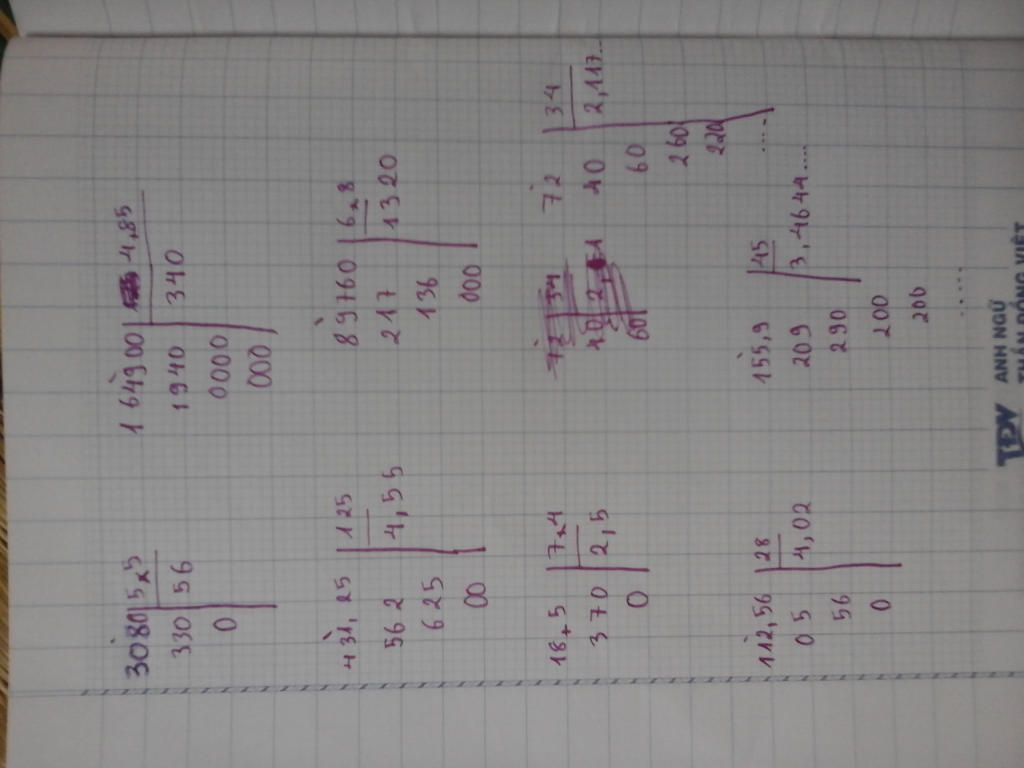 3080 5,5
330 56
0
164900 4,85
1940 340
0000
000
431,25 125
562 4,55
625
00
89760 6,8
217 1320
136
000
18,5 7,4
370 2,5
0
72 34
40 2,117...
60
260
220
.....
112,56 28
05 4,02
56
0
155,9 45
209 3,4644....
290
200
200
.....
TĐV ANH NGỮ
THẦN ĐỒNG VIỆT